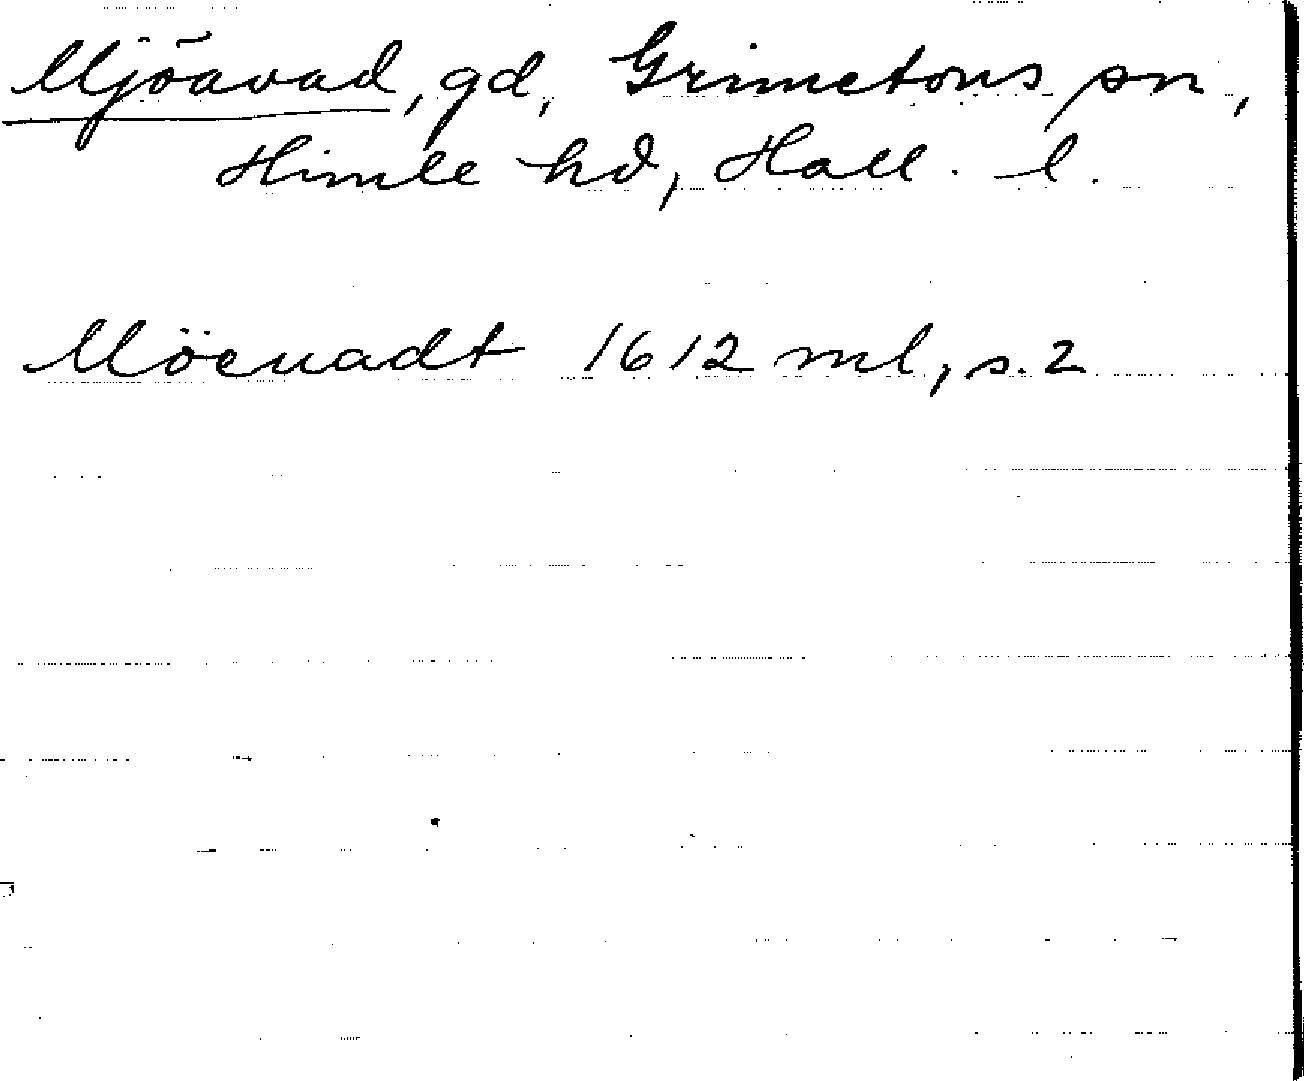 Mjöavad, gd, Grimetons sn,
Himle hd, Hall. l.
Möeuadt 1612 ml, s. 2